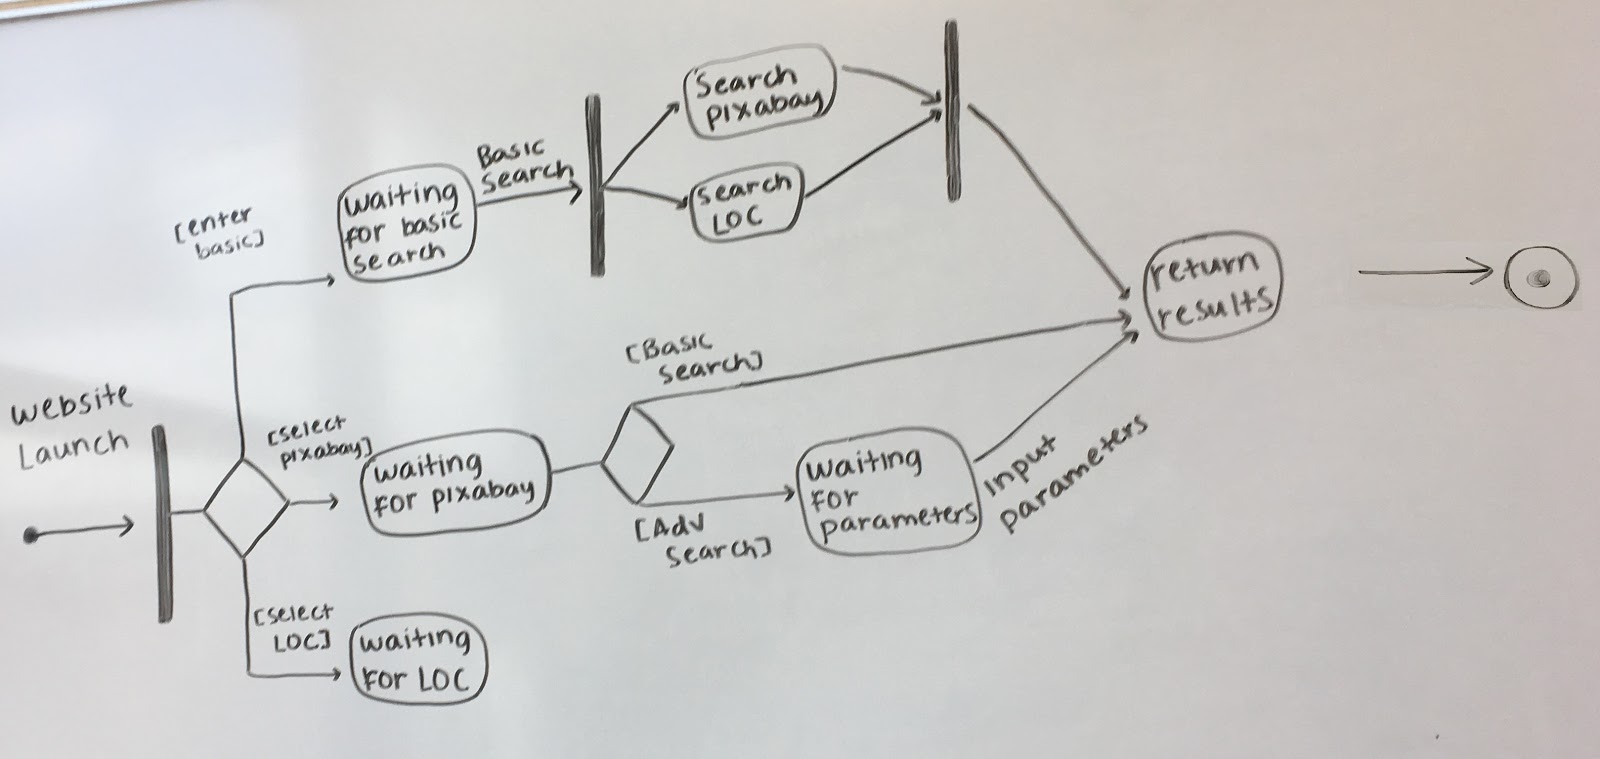 website
Launch
[enter
basic]
waiting
for basic
search
Basic
search
search
pixabay
search
LOC
return
results
[select
pixabay]
waiting
for pixabay
[Basic
search]
[Adv
search]
waiting
for
parameters
input
parameters
[select
LOC]
waiting
for LOC